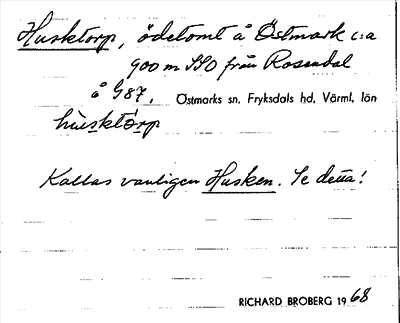 Husktorp, ödetomt å Östmark c:a
900 m SSO från Rosendal
å G87. Östmarks sn, Fryksdals hd, Värml. län
hùsktór̀p
Kallas vanligen Husken. Se detta!
RICHARD BROBERG 1968